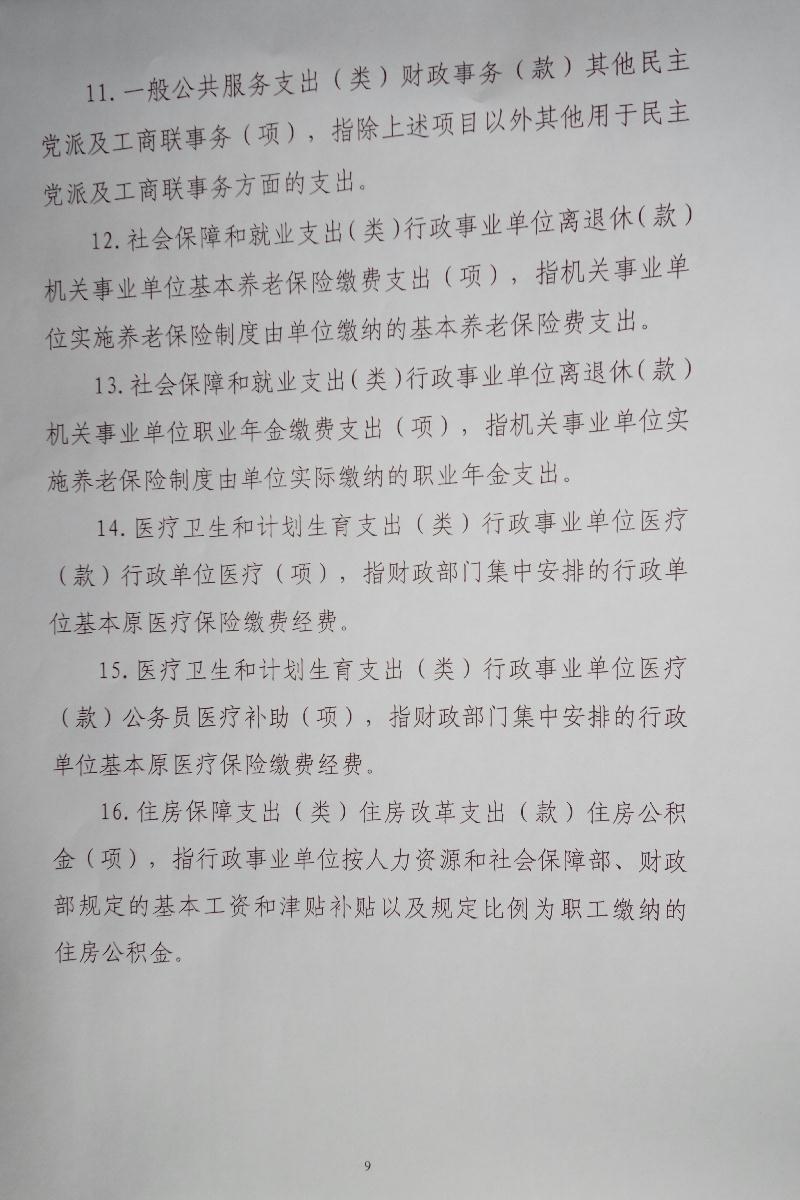 11.一般公共服务支出（类）财政事务（款）其他民主
党派及工商联事务（项），指除上述项目以外其他用于民主
党派及工商联事务方面的支出。
12.社会保障和就业支出(类)行政事业单位离退休(款)
机关事业单位基本养老保险缴费支出（项），指机关事业单
位实施养老保险制度由单位缴纳的基本养老保险费支出。
13.社会保障和就业支出(类)行政事业单位离退休(款)
机关事业单位职业年金缴费支出（项），指机关事业单位实
施养老保险制度由单位实际缴纳的职业年金支出。
14.医疗卫生和计划生育支出（类）行政事业单位医疗
（款）行政单位医疗（项），指财政部门集中安排的行政单
位基本原医疗保险缴费经费。
15.医疗卫生和计划生育支出（类）行政事业单位医疗
（款）公务员医疗补助（项），指财政部门集中安排的行政
单位基本原医疗保险缴费经费。
16.住房保障支出（类）住房改革支出（款）住房公积
金（项），指行政事业单位按人力资源和社会保障部、财政
部规定的基本工资和津贴补贴以及规定比例为职工缴纳的
住房公积金。
9